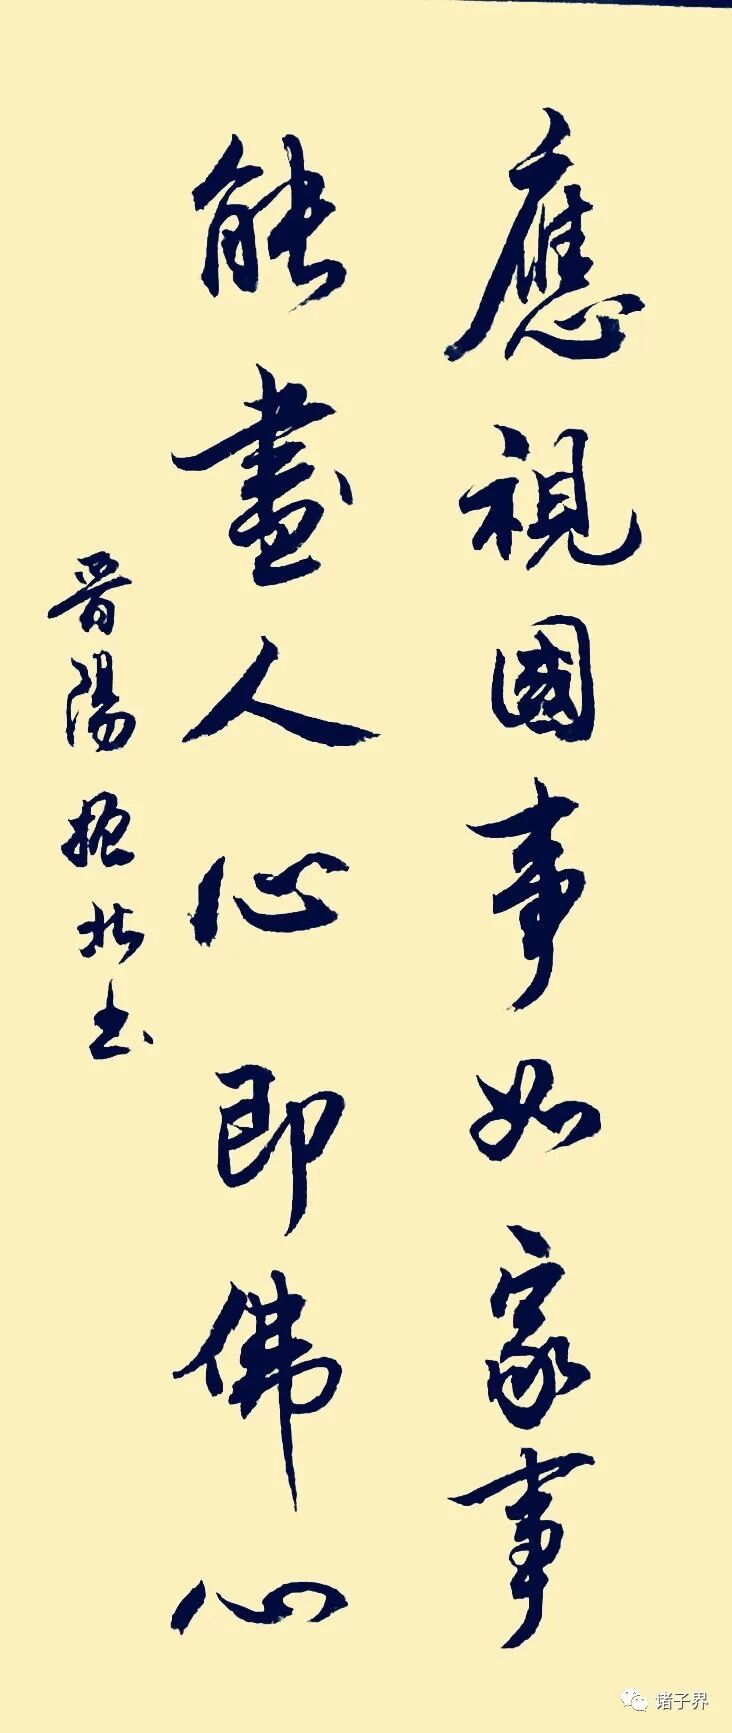 應視國事如家事
能盡人心即佛心
晋陽北书
诸子界